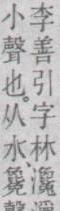 李善引字林瀺
小聲也。从水毚聲